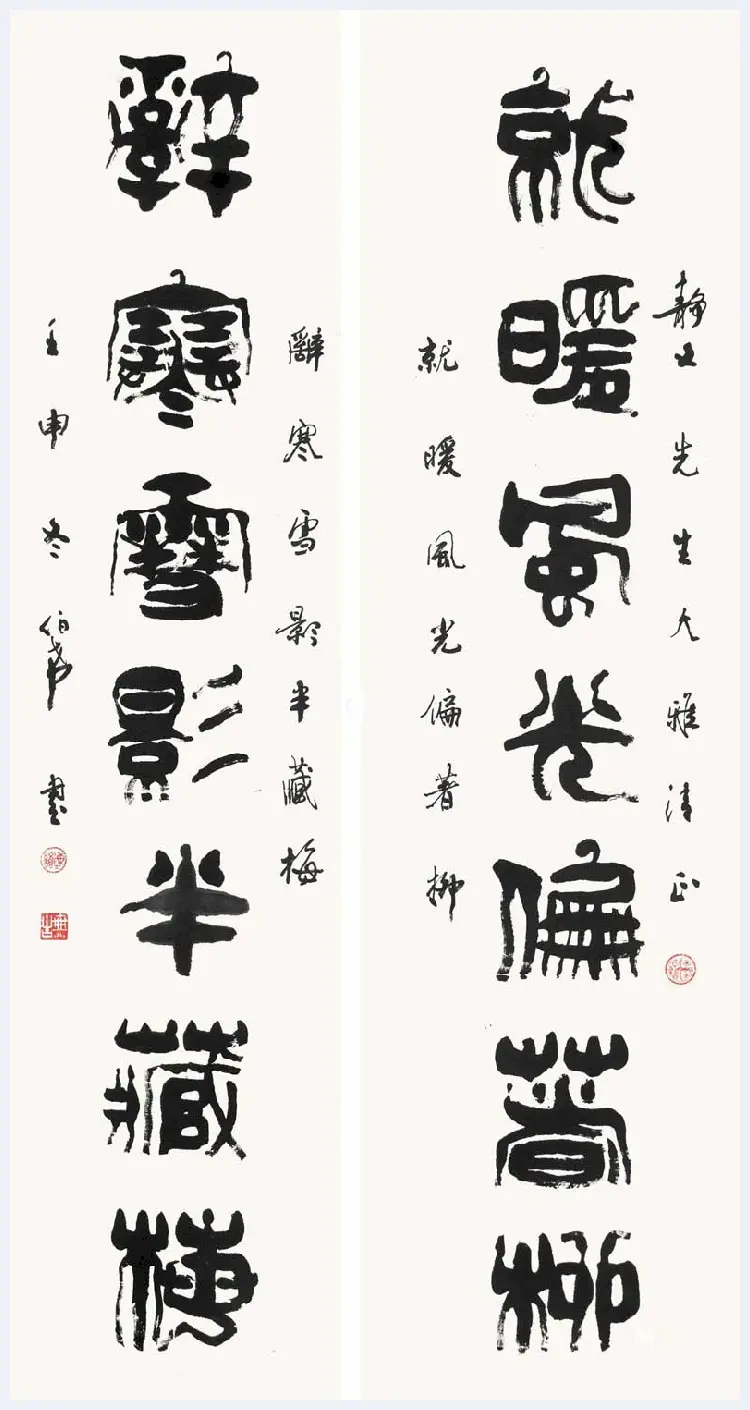 静 先生大雅清正
就暖風光偏著柳
就暖風光偏著柳
辭寒雪影半藏梅
辭寒雪影半藏梅
壬申冬伯 書